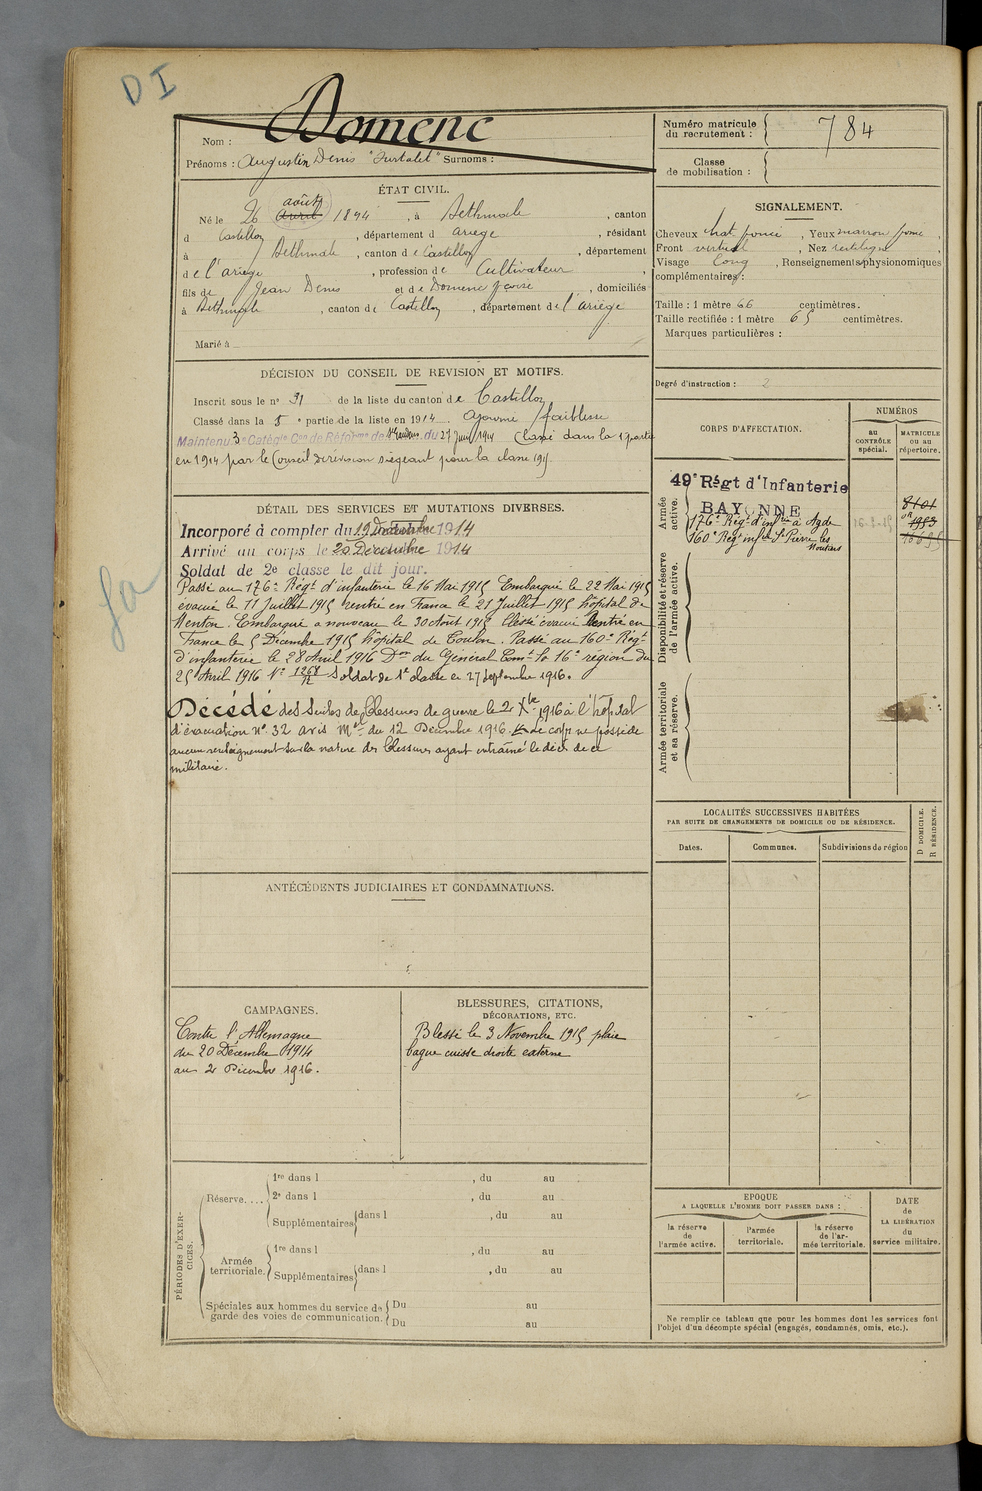 DI
Domenc
Nom :
Prénoms : Augustin Denis "Surtalet" Surnoms :
Numéro matricule
du recrutement : 784
Classe
de mobilisation :
ÉTAT CIVIL.
août
Né le 26 avril 1894, à Bethmale, canton
d Castillon, département d Ariège, résidant
à Bethmale, canton de Castillon, département
de l'Ariège, profession de Cultivateur,
fils de Jean Denis et de Domenc, domiciliés
à Bethmale, canton de Castillon, département de l'Ariège
Marié à
SIGNALEMENT.
Cheveux chat. foncé, Yeux marron foncé,
Front vertical, Nez rectiligne,
Visage long, Renseignements physionomiques
complémentaires :
Taille : 1 mètre 66 centimètres.
Taille rectifiée : 1 mètre 65 centimètres.
Marques particulières :
Degré d'instruction : 2
DÉCISION DU CONSEIL DE REVISION ET MOTIFS.
Inscrit sous le nº 31 de la liste du canton de Castillon
Classé dans la 5e partie de la liste en 1914. Ajourné faiblesse
Maintenu 3e Catégie Con de Réforme de du 27 Juin 1914 Classé dans la 1e partie
en 1914 par le Conseil de révision siégeant pour la classe 1915.
DÉTAIL DES SERVICES ET MUTATIONS DIVERSES.
Incorporé à compter du 19 Décembre 1914
Arrivé au corps le 20 Décembre 1914
Soldat de 2e classe le dit jour.
Passé au 176e Régt d'infanterie le 16 Mai 1915 Embarqué le 22 Mai 1915
évacué le 11 Juillet 1915 rentré en France le 21 Juillet 1915 hôpital de
Menton. Embarqué a nouveau le 30 Août 1915 blessé évacué Rentré en
France le 5 Décembre 1915 hôpital de Toulon. Passé au 160e Régt
d'infanterie le 28 Avril 1916 Don du Général Comt la 16e région du
25 Avril 1916 Nº 1268 Soldat de 1e classe le 27 septembre 1916.
Décédé des suites de blessures de guerre le 2 Xbre 1916 à l'hôpital
d'évacuation nº 32 avis Mel du 12 Décembre 1916. Le corps ne possède
aucun renseignement sur la nature des blessures ayant entraîné le décès de ce
militaire.
CORPS D'AFFECTATION.
NUMÉROS
au
CONTRÔLE
spécial.
MATRICULE
ou au
répertoire.
Armée
active.
49e Régt d'Infanterie
BAYONNE
176e Régt d'infrie à Agde
160e Régt infrie St Pierre les
Moutiers
8101
1953
16635
Disponibilité et réserve
de l'armée active.
Armée territoriale
et sa réserve.
LOCALITÉS SUCCESSIVES HABITÉES
PAR SUITE DE CHANGEMENTS DE DOMICILE OU DE RÉSIDENCE.
Dates.
Communes.
Subdivisions de région
D DOMICILE.
R RÉSIDENCE.
ANTÉCÉDENTS JUDICIAIRES ET CONDAMNATIONS.
CAMPAGNES.
Contre l'Allemagne
du 20 Décembre 1914
au 2 Décembre 1916.
BLESSURES, CITATIONS,
DÉCORATIONS, ETC.
Blessé le 3 Novembre 1915 plaie
cuisse droite externe
PÉRIODES D'EXER-
CICES.
Réserve....
1re dans l , du au
2e dans l , du au
Supplémentaires dans l , du au
Armée
territoriale.
1re dans l , du au
Supplémentaires dans l , du au
Spéciales aux hommes du service de
garde des voies de communication.
Du au
Du au
EPOQUE
A LAQUELLE L'HOMME DOIT PASSER DANS :
la réserve
de
l'armée active.
l'armée
territoriale.
la réserve
de l'ar-
mée territoriale.
DATE
de
LA LIBÉRATION
du
service militaire.
Ne remplir ce tableau que pour les hommes dont les services font
l'objet d'un décompte spécial (engagés, condamnés, omis, etc.).